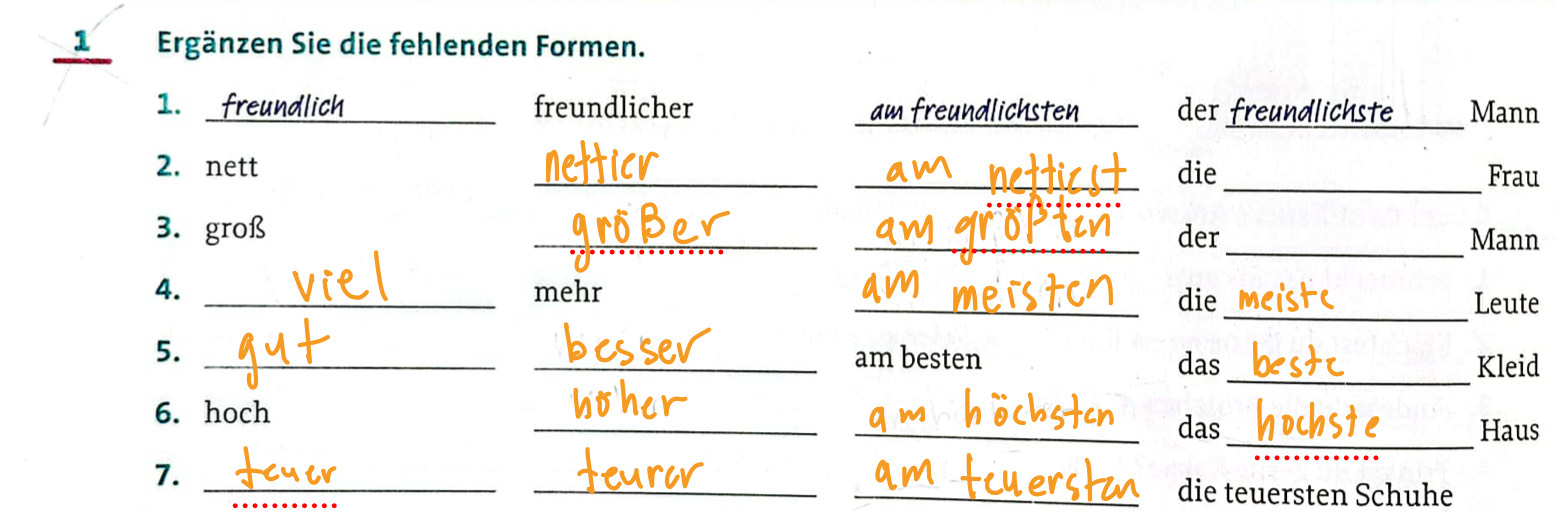 1 Ergänzen Sie die fehlenden Formen.
1. freundlich freundlicher am freundlichsten der freundlichste Mann
2. nett nettier am nettiest die Frau
3. groß größer am größten der Mann
4. viel mehr am meisten die meiste Leute
5. gut besser am besten das beste Kleid
6. hoch höher am höchsten das hochste Haus
7. teuer teurer am teuersten die teuersten Schuhe